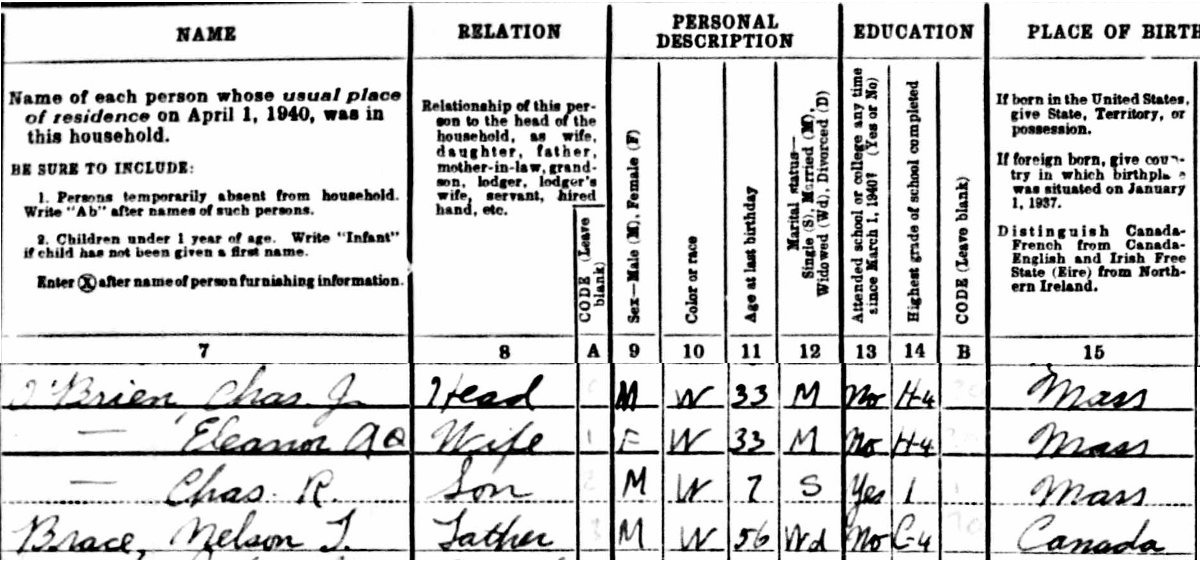 NAME RELATION PERSONAL DESCRIPTION EDUCATION PLACE OF BIRTH
Name of each person whose usual place
of residence on April 1, 1940, was in
this household.
BE SURE TO INCLUDE:
1. Persons temporarily absent from household.
Write "Ab" after names of such persons.
2. Children under 1 year of age. Write "Infant"
if child has not been given a first name.
Enter Ⓧ after name of person furnishing information.
Relationship of this per-
son to the head of the
household, as wife,
daughter, father,
mother-in-law, grand-
son, lodger, lodger's
wife, servant, hired
hand, etc.
CODE (Leave
blank)
Sex—Male (M), Female (F)
Color or race
Age at last birthday
Marital status—
Single (S), Married (M),
Widowed (Wd), Divorced (D)
Attended school or college any time
since March 1, 1940? (Yes or No)
Highest grade of school completed
CODE (Leave blank)
If born in the United States,
give State, Territory, or
possession.
If foreign born, give coun-
try in which birthplace
was situated on January
1, 1937.
Distinguish Canada-
French from Canada-
English and Irish Free
State (Eire) from North-
ern Ireland.
7 8 A 9 10 11 12 13 14 B 15
O'Brien, Chas. J. Head M W 33 M No H-4 Mass
— Eleanor Wife 1 F W 33 M No H-4 Mass
— Chas. R. Son 2 M W 7 S Yes 1 1 Mass
Brace, Nelson T. Father 3 M W 56 Wd No C-4 Canada